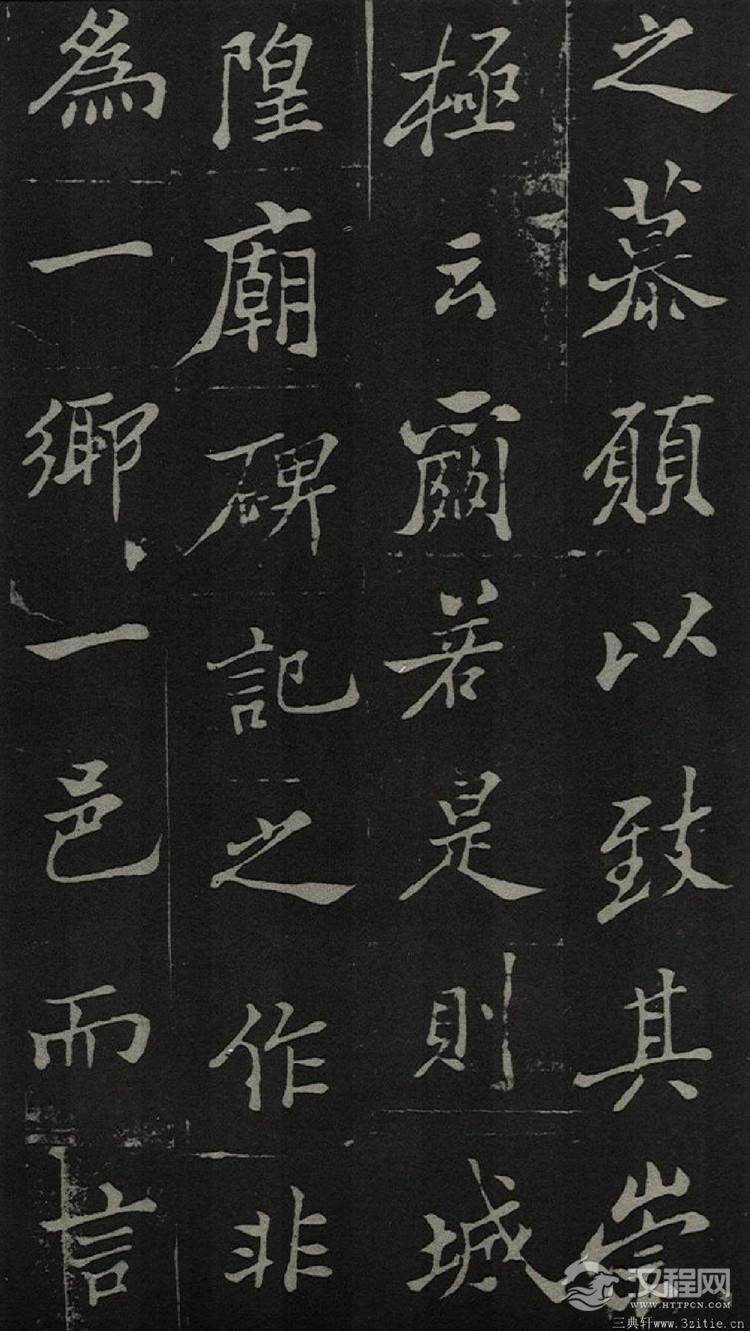 之慕願以致其崇
極云爾若是則城
隍廟碑記之作非
為一鄉一邑而言
汉程网
WWW.HTTPCN.COM
三典轩www.3zitie.cn